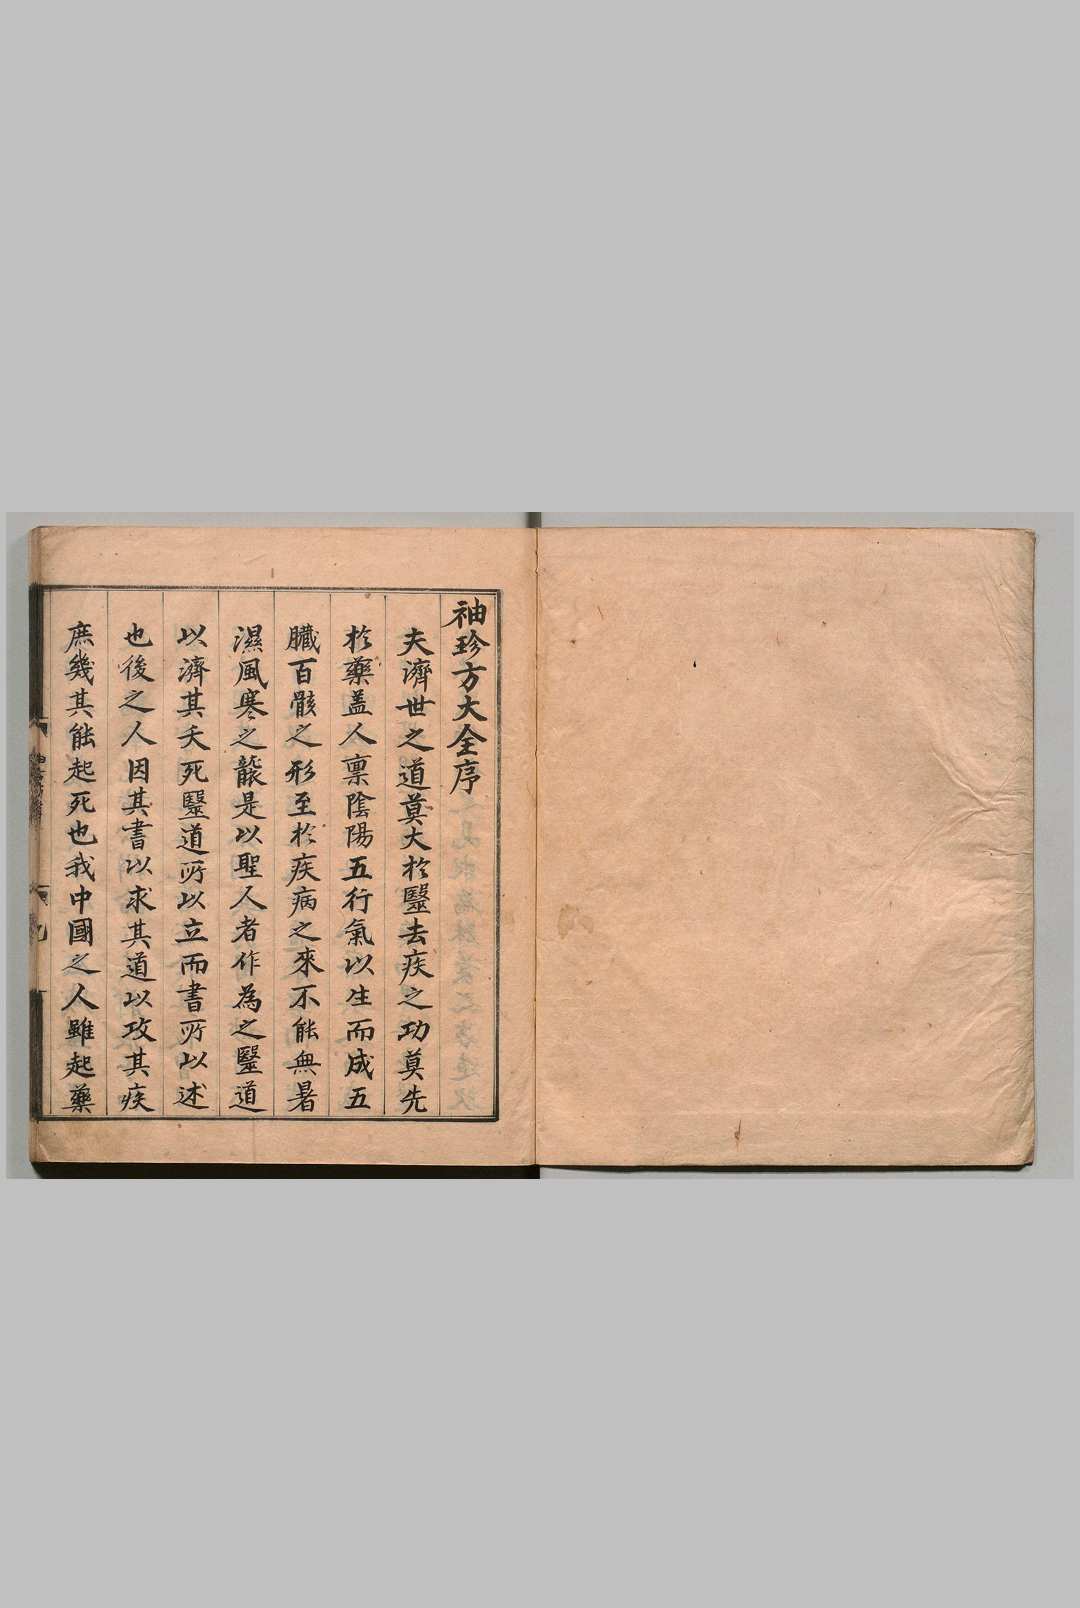 袖珍方大全序
夫濟世之道莫大於毉去疾之功莫先
於藥盖人禀陰陽五行氣以生而成五
臓百骸之形至於疾病之來不能無暑
濕風寒之襲是以聖人者作為之毉道
以濟其夭死毉道所以立而書所以述
也後之人因其書以求其道以攻其疾
庶幾其能起死也我中國之人雖起藥